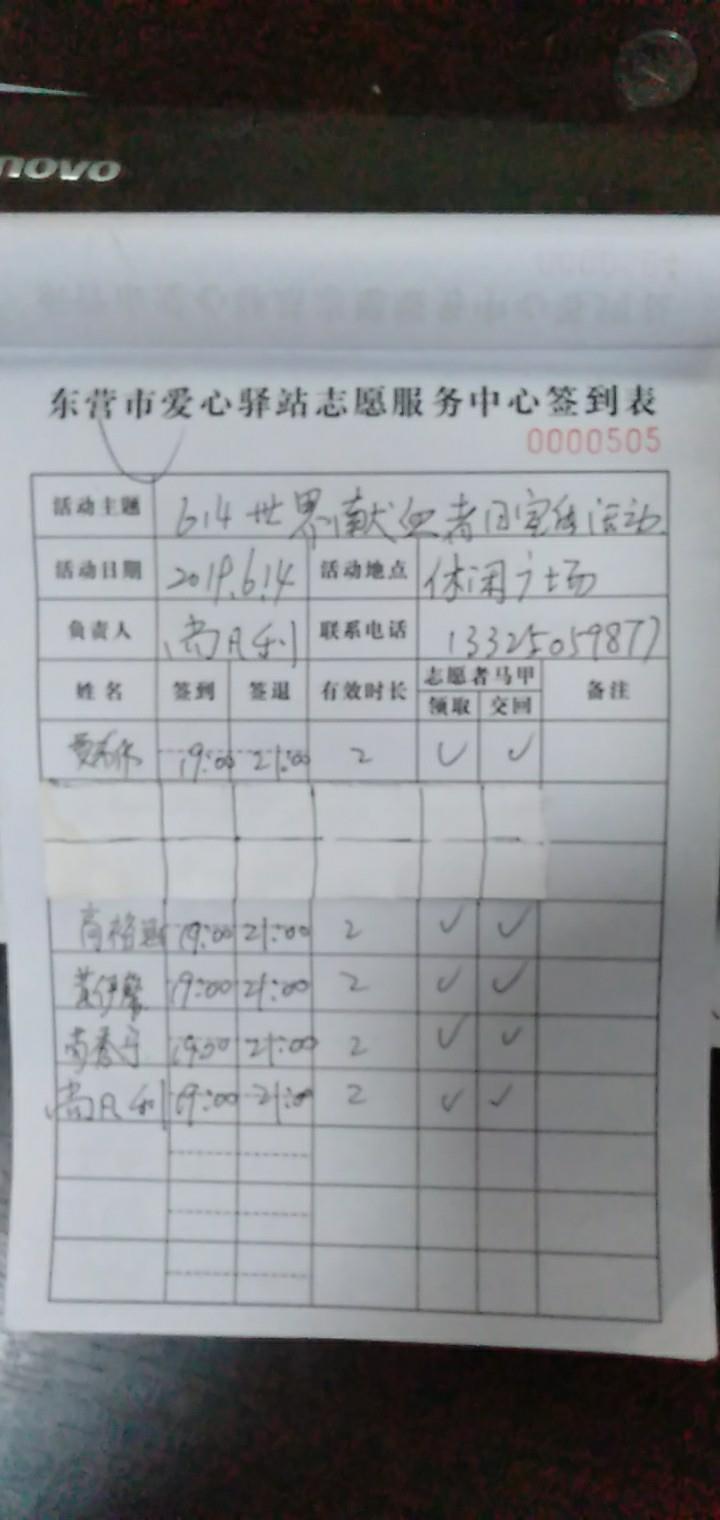 novo
东营市爱心驿站志愿服务中心签到表
0000505
活动主题 6.14世界献血者日宣传活动
活动日期 2019.6.14 活动地点 休闲广场
负责人 尚凡利 联系电话 13325059877
姓名 签到 签退 有效时长 志愿者马甲 备注
领取 交回
19:00 21:00 2 ✓ ✓
19:00 21:00 2 ✓ ✓
19:00 21:00 2 ✓ ✓
21:00 2 ✓ ✓
尚凡利 19:00 21:00 2 ✓ ✓